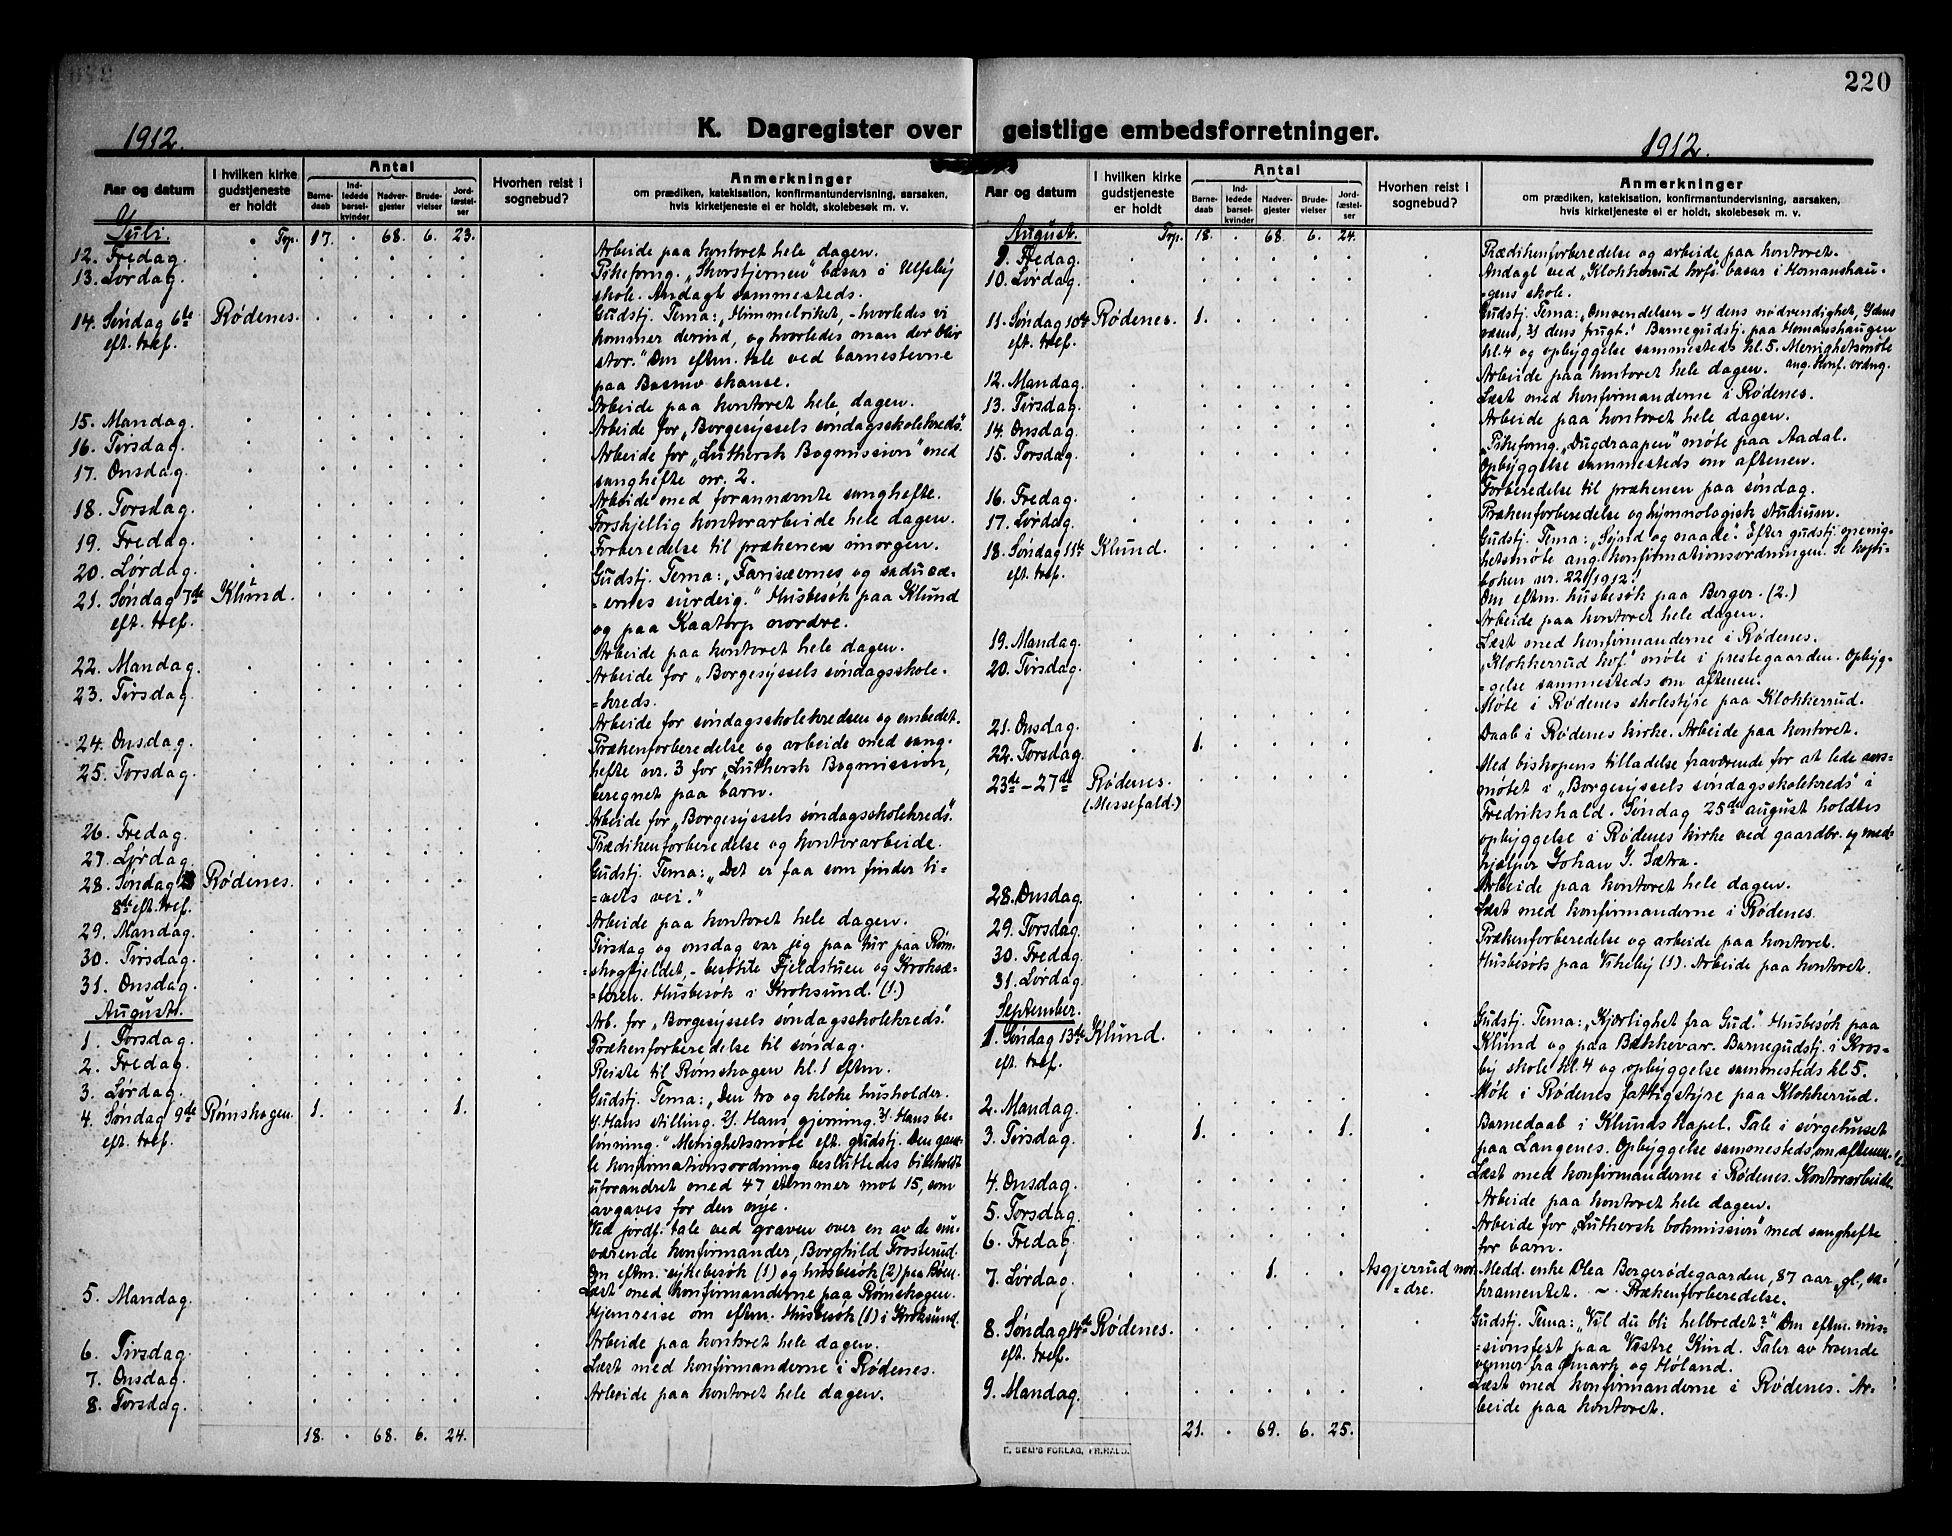 220
1912.
K. Dagregister over geistlige embedsforretninger.
1912.
Aar og datum
I hvilken kirke gudstjeneste er holdt
Antal
Barnedaab
Indledede barselkvinder
Nadvergjester
Brudevielser
Jordfæstelser
Hvorhen reist i sognebud?
Anmerkninger
om prædiken, katekisation, konfirmantundervisning, aarsaken,
hvis kirketjeneste ei er holdt, skolebesøk m. v.
Juli. Trp. 17. . 68. 6. 23.
12. Fredag. Arbeide paa kontoret hele dagen.
13. Lørdag. Pikeforng. „Skorstjernen" basar i Ulfsby
skole. Andagt sammesteds.
14. Søndag 6te Rødenes. Gudstj. Tema: „Himmelriket, - hvorledes vi
eft. tref. kommer derind, og hvorledes man der blir
stor." Om eftm. tale ved barnestevne
paa Basmo skanse.
15. Mandag. Arbeide paa kontoret hele dagen.
16. Tirsdag. Arbeide for „Borgesyssels søndagsskolekreds."
17. Onsdag. Arbeide for „Luthersk Bogmission" med
sanghefte nr. 2.
18. Torsdag. Arbeide med forannævnte sanghefte.
19. Fredag. Forskjellig kontorarbeide hele dagen.
20. Lørdag. Forberedelse til prækenen imorgen.
21. Søndag 7de Klund. Gudstj. Tema: „Farisæernes og saducæ-
eft. tref. =ernes surdeig." Husbesøk paa Klund
og paa Kaatorp nordre.
22. Mandag. Arbeide paa kontoret hele dagen.
23. Tirsdag. Arbeide for „Borgesyssels søndagsskole-
=kreds.
24. Onsdag. Arbeide for søndagsskolekredsen og embedet.
25. Torsdag. Prækenforberedelse og arbeide med sang-
hefte nr. 3 for „Luthersk Bogmission,
beregnet paa barn.
26. Fredag. Arbeide for „Borgesyssels søndagsskolekreds."
27. Lørdag. Prædikenforberedelse og kontorarbeide.
28. Søndag Rødenes. Gudstj. Tema: „Det er faa som finder li-
8de eft. tref. =vets vei."
29. Mandag. Arbeide paa kontoret hele dagen.
30. Tirsdag. Tirsdag og onsdag var jeg paa tur paa Røm-
31. Onsdag. =skogfjeldet, - besøkte Fjeldstuen og Kroksæ-
=teren. Husbesøk i Kroksund. (1.)
August.
1. Torsdag. Arb. for „Borgesyssels søndagsskolekreds."
2. Fredag. Prækenforberedelse til søndag.
3. Lørdag. Reiste til Rømskogen kl. 1 eftm.
4. Søndag 9de Rømskogen. 1. 1. Gudstj. Tema: „Den tro og kloke husholder.
eft. tref. 1) Hans stilling. 2) Hans gjerning. 3) Hans be-
lønning." Menighetsmøte eft. gudstj. Den gam-
le konfirmationsordning besluttedes bibeholdt
uforandret med 47 stemmer mot 15, som
avgaves for den nye.
Ved jordf. tale ved graven over en av de nu-
værende konfirmander, Borghild Trosterud.
Om eftm. sykebesøk (1) og husbesøk (2) paa
5. Mandag. Læst med konfirmanderne paa Rømskogen.
Hjemreise om eftm. Husbesøk (1) i Kroksund.
6. Tirsdag. Arbeide paa kontoret hele dagen.
7. Onsdag. Læst med konfirmanderne i Rødenes.
8. Torsdag. Arbeide paa kontoret hele dagen.
18. . 68. 6. 24.
Aar og datum
I hvilken kirke gudstjeneste er holdt
Antal
Barnedaab
Indledede barselkvinder
Nadvergjester
Brudevielser
Jordfæstelser
Hvorhen reist i sognebud?
Anmerkninger
om prædiken, katekisation, konfirmantundervisning, aarsaken,
hvis kirketjeneste ei er holdt, skolebesøk m. v.
August. Trp. 18. . 68. 6. 24.
9. Fredag. Prædikenforberedelse og arbeide paa kontoret.
10. Lørdag. Andagt ved „Klokkerud kvf.s basar i Homanshau-
=gens skole.
11. Søndag 10de Rødenes. 1. Gudstj. Tema: „Omvendelsen - 1) dens nødvendighet, 2) dens
eft. tref. væsen, 3) dens frugt." Barnegudstj. paa Homanshaugen
kl. 4 og opbyggelse sammesteds kl. 5. Menighetsmøte
ang. konf. ordng.
12. Mandag. Arbeide paa kontoret hele dagen.
13. Tirsdag. Læst med konfirmanderne i Rødenes.
14. Onsdag. Arbeide paa kontoret hele dagen.
15. Torsdag. Pikeforng. „Dugdraapen" møte paa Aadal.
Opbyggelse sammesteds om aftenen.
16. Fredag. Forberedelse til prækenen paa søndag.
17. Lørdag. Prækenforberedelse og hymnologisk studium.
18. Søndag 11te Klund. Gudstj. Tema: „Synd og naade." Efter gudstj. menig-
eft. tref. hetsmøte ang. konfirmationsordningen. Se kopi-
boken nr. 221/1912.
Om eftm. husbesøk paa Berger. (2.)
19. Mandag. Arbeide paa kontoret hele dagen.
20. Tirsdag. Læst med konfirmanderne i Rødenes.
„Klokkerrud kvf." møte i prestegaarden. Opbyg-
=gelse sammesteds om aftenen.
21. Onsdag. Møte i Rødenes skolestyre paa Klokkerrud.
22. Torsdag. 1. Daab i Rødenes kirke. Arbeide paa kontoret.
23de-27de Rødenes. Med bispens tilladelse fraværende for at lede aars-
(Messefald.) møtet i „Borgesyssels søndagsskolekreds" i
Fredrikshald. Søndag 25de august holdtes
opbyggelse i Rødenes kirke ved gaardbr. og med-
hjælper Johan J. Sætra.
28. Onsdag. Arbeide paa kontoret hele dagen.
29. Torsdag. Læst med konfirmanderne i Rødenes.
30. Fredag. Prækenforberedelse og arbeide paa kontoret.
31. Lørdag. Husbesøk paa Vikeby (1). Arbeide paa kontoret.
September.
1. Søndag 13de Klund. Gudstj. Tema: „Kjærlighet fra Gud." Husbesøk paa
eft. tref. Klund og paa Bakkevar. Barnegudstj. i Kros-
by skole kl. 4 og opbyggelse sammesteds kl 5.
2. Mandag. Møte i Rødenes fattigstyre paa Klokkerrud.
3. Tirsdag. 1. 1. Barnedaab i Klunds kapel. Tale i sørgehuset
paa Langenes. Opbyggelse sammesteds om aftenen.
4. Onsdag. Læst med konfirmanderne i Rødenes. Kontorarbeide.
5. Torsdag. Arbeide paa kontoret hele dagen.
6. Fredag. Arbeide for „Luthersk bokmission" med sanghefte
for barn.
7. Lørdag. 1. Asgjerrud nor- Medd. enke Olea Bergerødegaarden, 87 aar gl., sa-
=dre. kramentet. ~ Prækenforberedelse.
8. Søndag 14de Rødenes. Gudstj. Tema: „Vil du bli helbredet?" Om eftm. mis-
eft. tref. =sionsfest paa Vestre Kind. Taler av troende
venner fra Ømark og Høland.
9. Mandag. Læst med konfirmanderne i Rødenes. Ar-
beide paa kontoret.
21. . 69. 6. 25.
E. SEM'S FORLAG, FR.HALD.